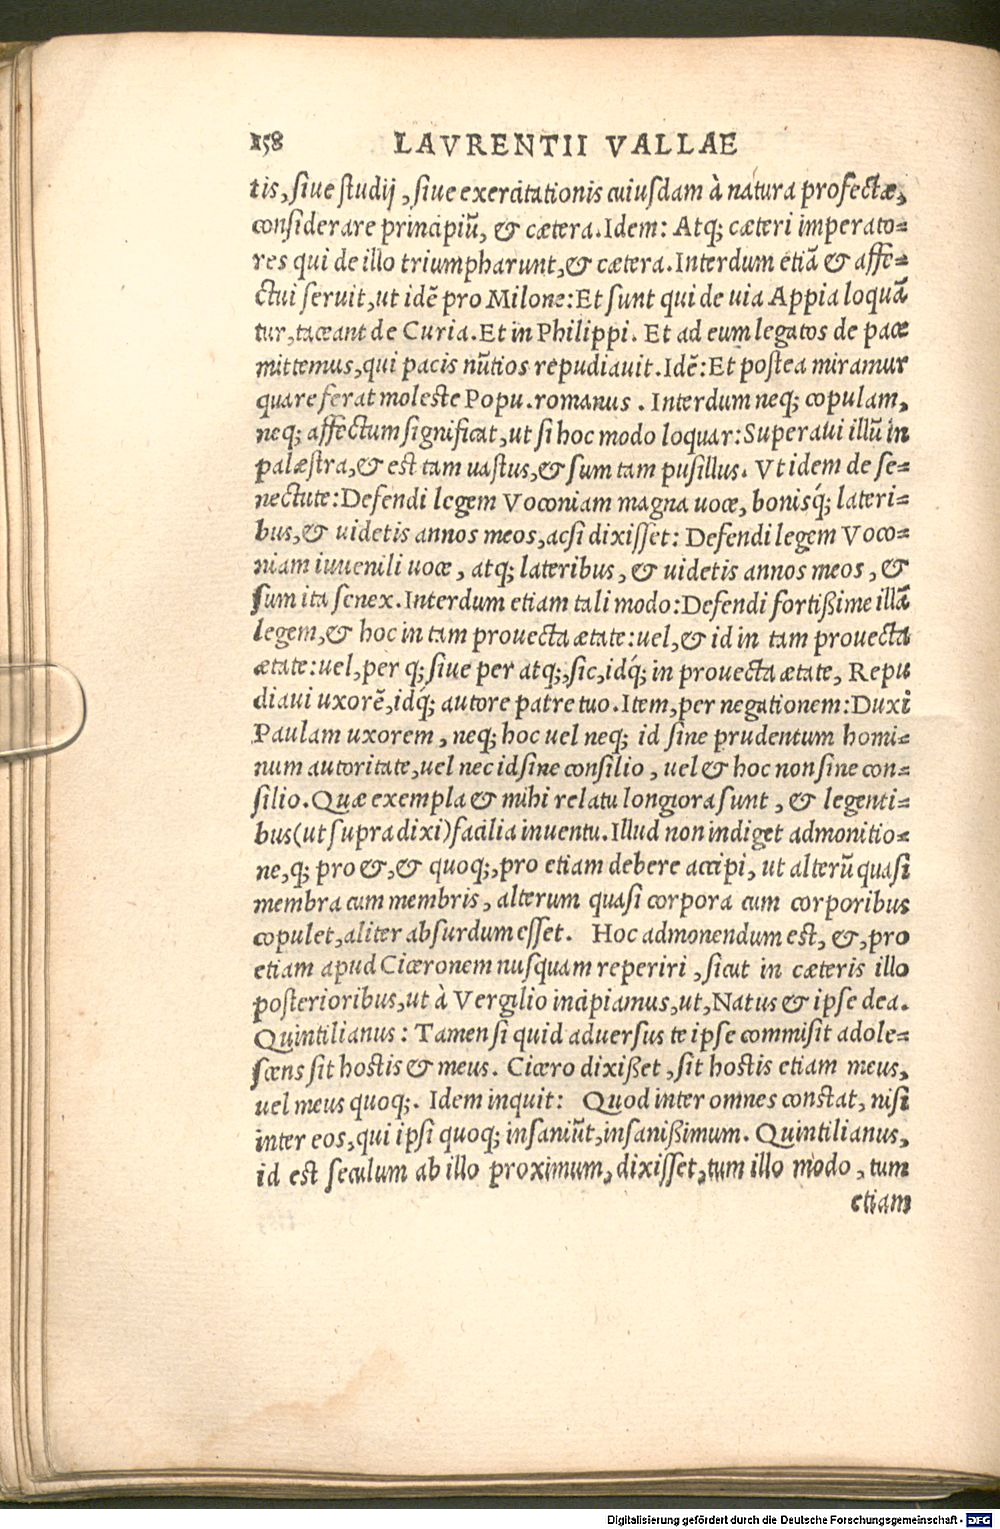 158 LAVRENTII VALLAE
tis, siue studij, siue exercitationis cuiusdam à natura profectæ,
considerare principiũ, & cætera. Idem: Atq; cæteri imperato=
res qui de illo triumpharunt, & cætera. Interdum etiã & affe=
ctui seruit, ut idẽ pro Milone: Et sunt qui de uia Appia loquã
tur, taceant de Curia. Et in Philippi. Et ad eum legatos de pace
mittemus, qui pacis nũtios repudiauit. Idẽ: Et postea miramur
quare ferat moleste Popu. romanus. Interdum neq; copulam,
neq; affectum significat, ut si hoc modo loquar: Superaui illũ in
palæstra, & est tam uastus, & sum tam pusillus. Vt idem de se=
nectute: Defendi legem Voconiam magna uoce, bonisq́; lateri=
bus, & uidetis annos meos, acsi dixisset: Defendi legem Voco=
niam iuuenili uoce, atq; lateribus, & uidetis annos meos, &
sum ita senex. Interdum etiam tali modo: Defendi fortißime illã
legem, & hoc in tam prouecta ætate: uel, & id in tam prouecta
ætate: uel, per q; siue per atq;, sic, idq́; in prouecta ætate, Repu
diaui uxorẽ, idq́; autore patre tuo. Item, per negationem: Duxi
Paulam uxorem, neq; hoc uel neq; id sine prudentum homi=
num autoritate, uel nec id sine consilio, uel & hoc non sine con=
silio. Quæ exempla & mihi relatu longiora sunt, & legenti=
bus (ut supra dixi) facilia inuentu. Illud non indiget admonitio=
ne, q; pro &, & quoq;, pro etiam debere accipi, ut alterũ quasi
membra cum membris, alterum quasi corpora cum corporibus
copulet, aliter absurdum esset. Hoc admonendum est, &, pro
etiam apud Ciceronem nusquam reperiri, sicut in cæteris illo
posterioribus, ut à Vergilio incipiamus, ut, Natus & ipse dea.
Quintilianus: Tamen si quid aduersus te ipse commisit adole=
scens sit hostis & meus. Cicero dixißet, sit hostis etiam meus,
uel meus quoq;. Idem inquit: Quod inter omnes constat, nisi
inter eos, qui ipsi quoq; insaniũt, insanißimum. Quintilianus,
id est seculum ab illo proximum, dixisset, tum illo modo, tum
etiam
Digitalisierung gefördert durch die Deutsche Forschungsgemeinschaft - DFG